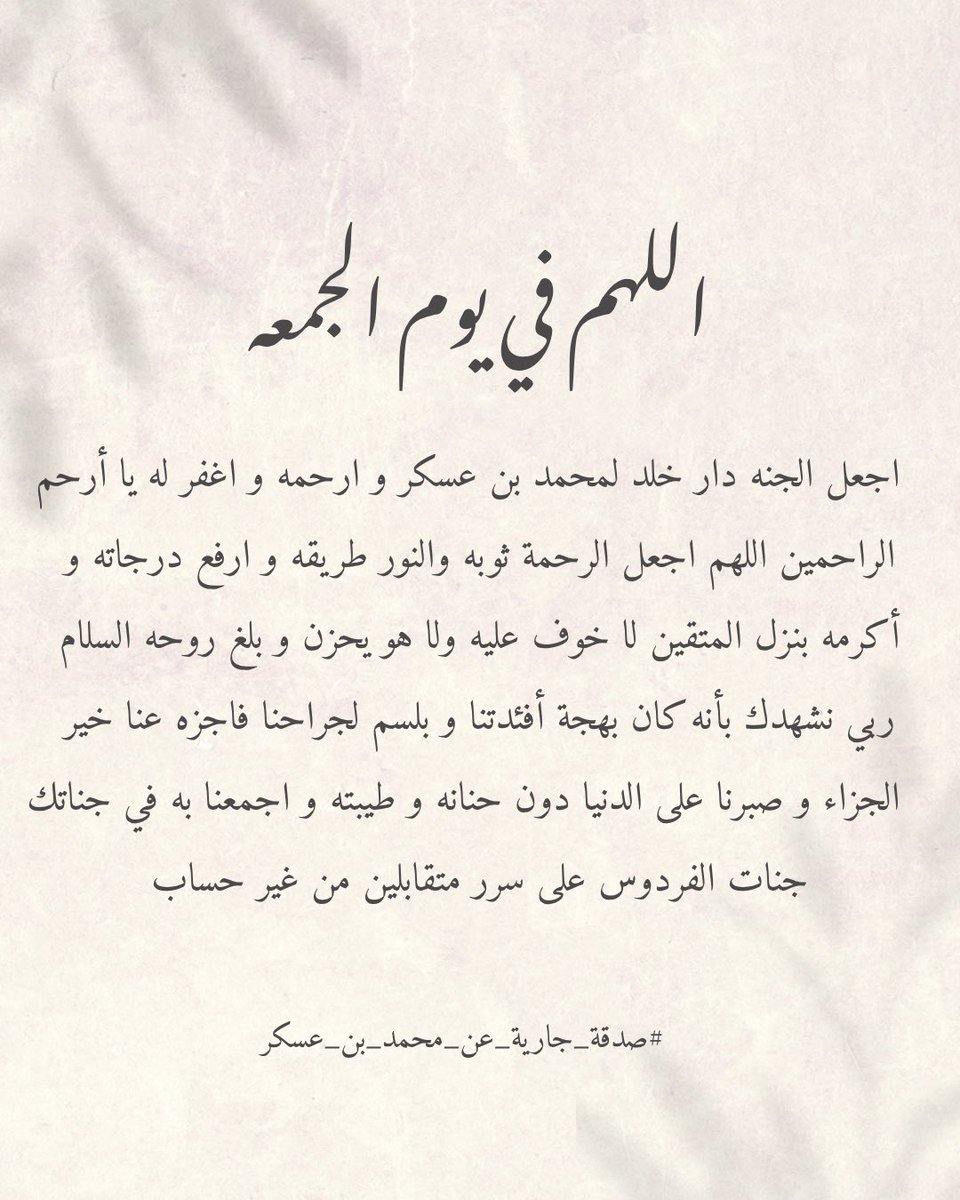 اللهم في يوم الجمعه
اجعل الجنه دار خلد لمحمد بن عسكر و ارحمه و اغفر له يا أرحم
الراحمين اللهم اجعل الرحمة ثوبه والنور طريقه و ارفع درجاته و
أكرمه بنزل المتقين لا خوف عليه ولا هو يحزن و بلغ روحه السلام
ربي نشهدك بأنه كان بهجة أفئدتنا و بلسم لجراحنا فاجزه عنا خير
الجزاء و صبرنا على الدنيا دون حنانه و طيبته و اجمعنا به في جناتك
جنات الفردوس على سرر متقابلين من غير حساب
#صدقة_جارية_عن_محمد_بن_عسكر